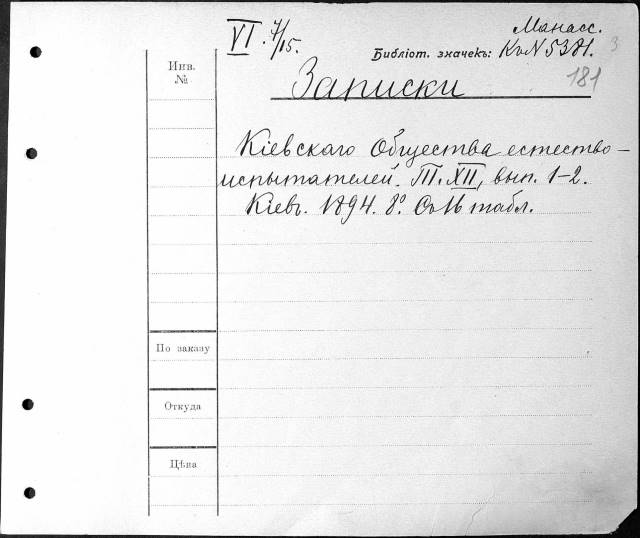 VI. 7/15.
Манасс.
Инв.
№
Библіот. значекъ: К№ 5381.
3
181
Записки
Кіевскаго Общества естество-
испытателей. Т. XII, вып. 1-2.
Кіевъ. 1894. 8º. Съ 16 табл.
По заказу
Откуда
Цѣна